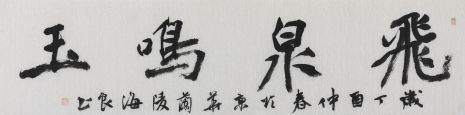 飛泉鳴玉
歲丁酉仲春於東莞蘭陵海良书